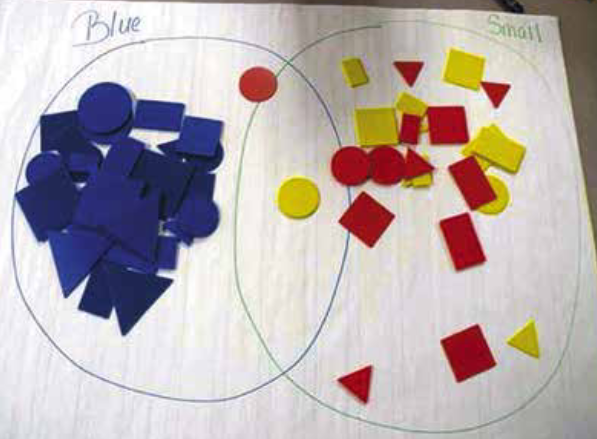 Blue
Small